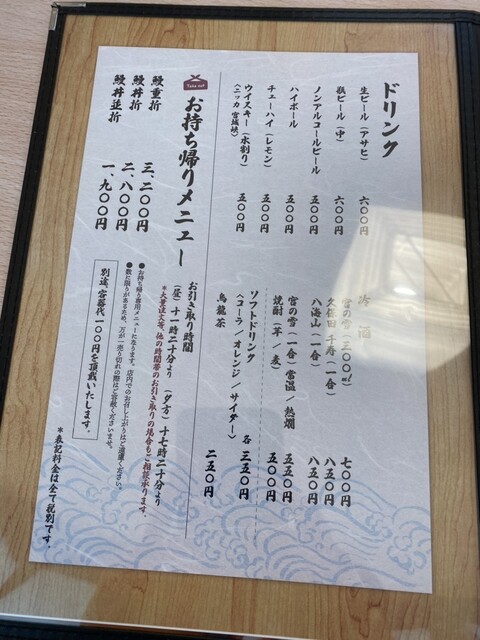 ドリンク
生ビール（アサヒ） 六〇〇円
瓶ビール（中） 六〇〇円
ノンアルコールビール 五〇〇円
ハイボール 五〇〇円
チューハイ（レモン） 五〇〇円
ウイスキー（水割り） 五〇〇円
〈ニッカ 宮城峡〉
冷酒
宮の雪（三〇〇ml） 七〇〇円
久保田 千寿（一合） 八五〇円
八海山（一合） 八五〇円
宮の雪（一合）常温／熱燗 五五〇円
焼酎（芋／麦） 五〇〇円
ソフトドリンク 各 三五〇円
〈コーラ／オレンジ／サイダー〉
烏龍茶 二五〇円
Take out
お持ち帰りメニュー
鰻重折 三、二〇〇円
鰻丼折 二、八〇〇円
鰻丼並折 一、九〇〇円
お引き取り時間
（昼）十一時二十分より （夕方）十七時二十分より
＊大量注文等、他の時間帯のお引き取りの場合もご相談承ります。
●お持ち帰り専用メニューになります。店内でのお召し上がりはご遠慮ください。
●数に限りがあるため、万が一売り切れの際はご容赦くださいませ。
別途、容器代一〇〇円を頂戴いたします。
＊表記料金は全て税別です。